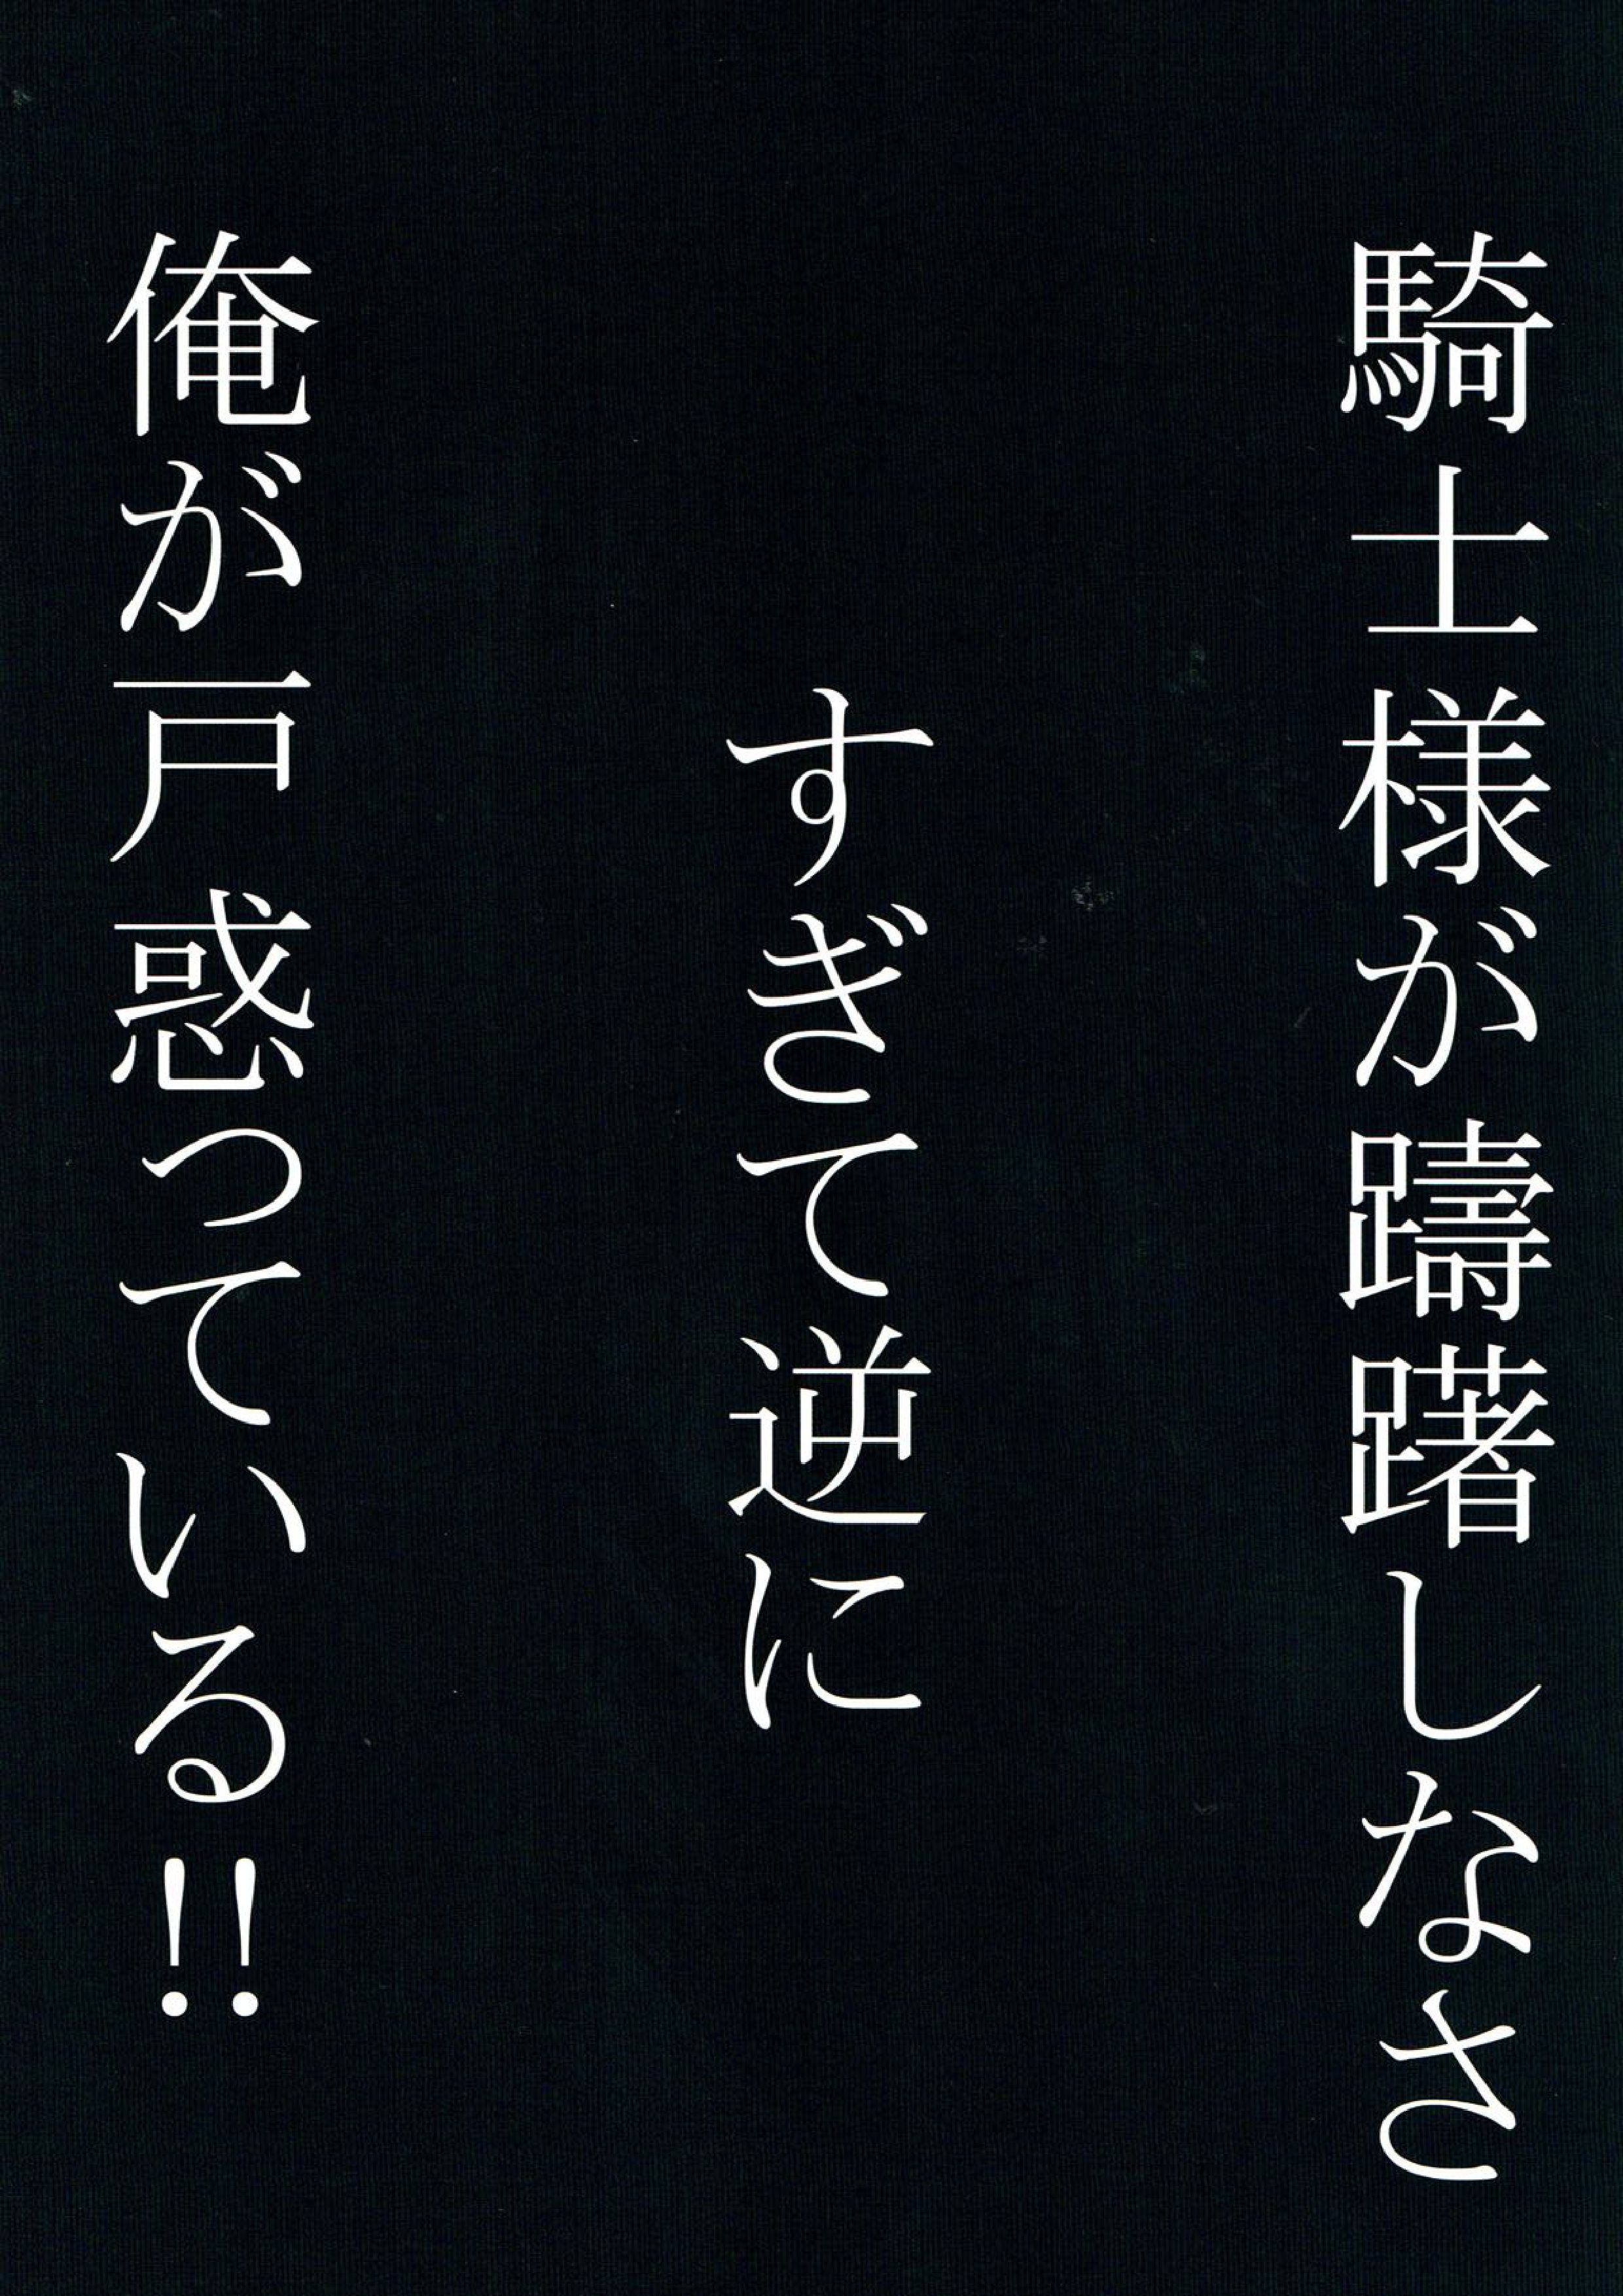 騎士様が躊躇しなさ
すぎて逆に
俺が戸惑っている!!